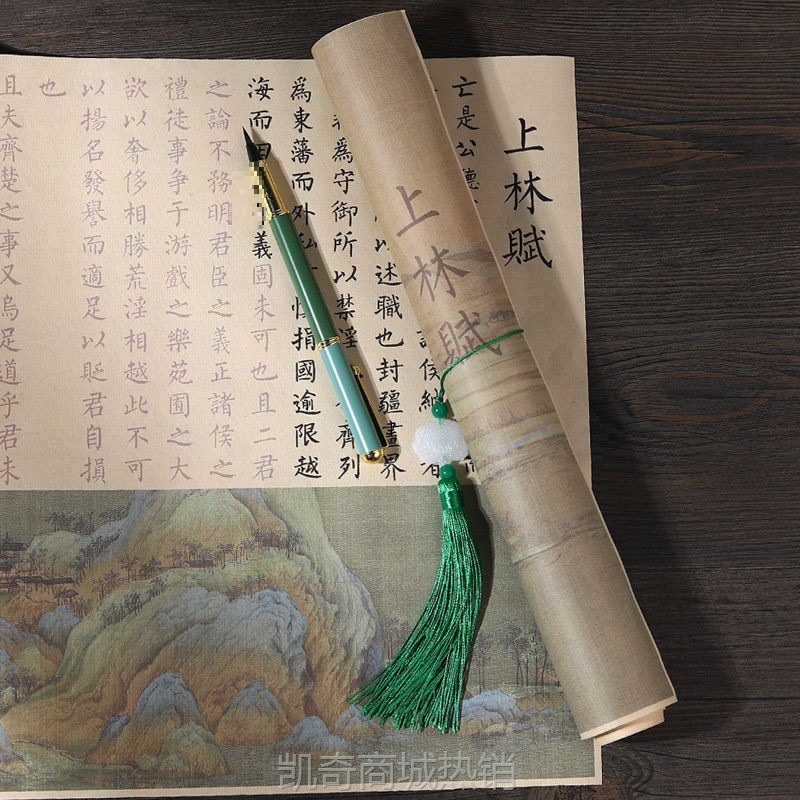 上林賦
亡是公
侯納者
以述職也封疆畫界
爲守御所以禁淫齊列
爲東藩而外私捐國逾限越
海而田義固未可也且二君
之論不務明君臣之義正諸侯之
禮徒事争于游戲之樂苑囿之大
欲以奢侈相勝荒淫相越此不可
以揚名發譽而適足以貶君自損
也
且夫齊楚之事又烏足道乎君未
上林賦
凯奇商城热销